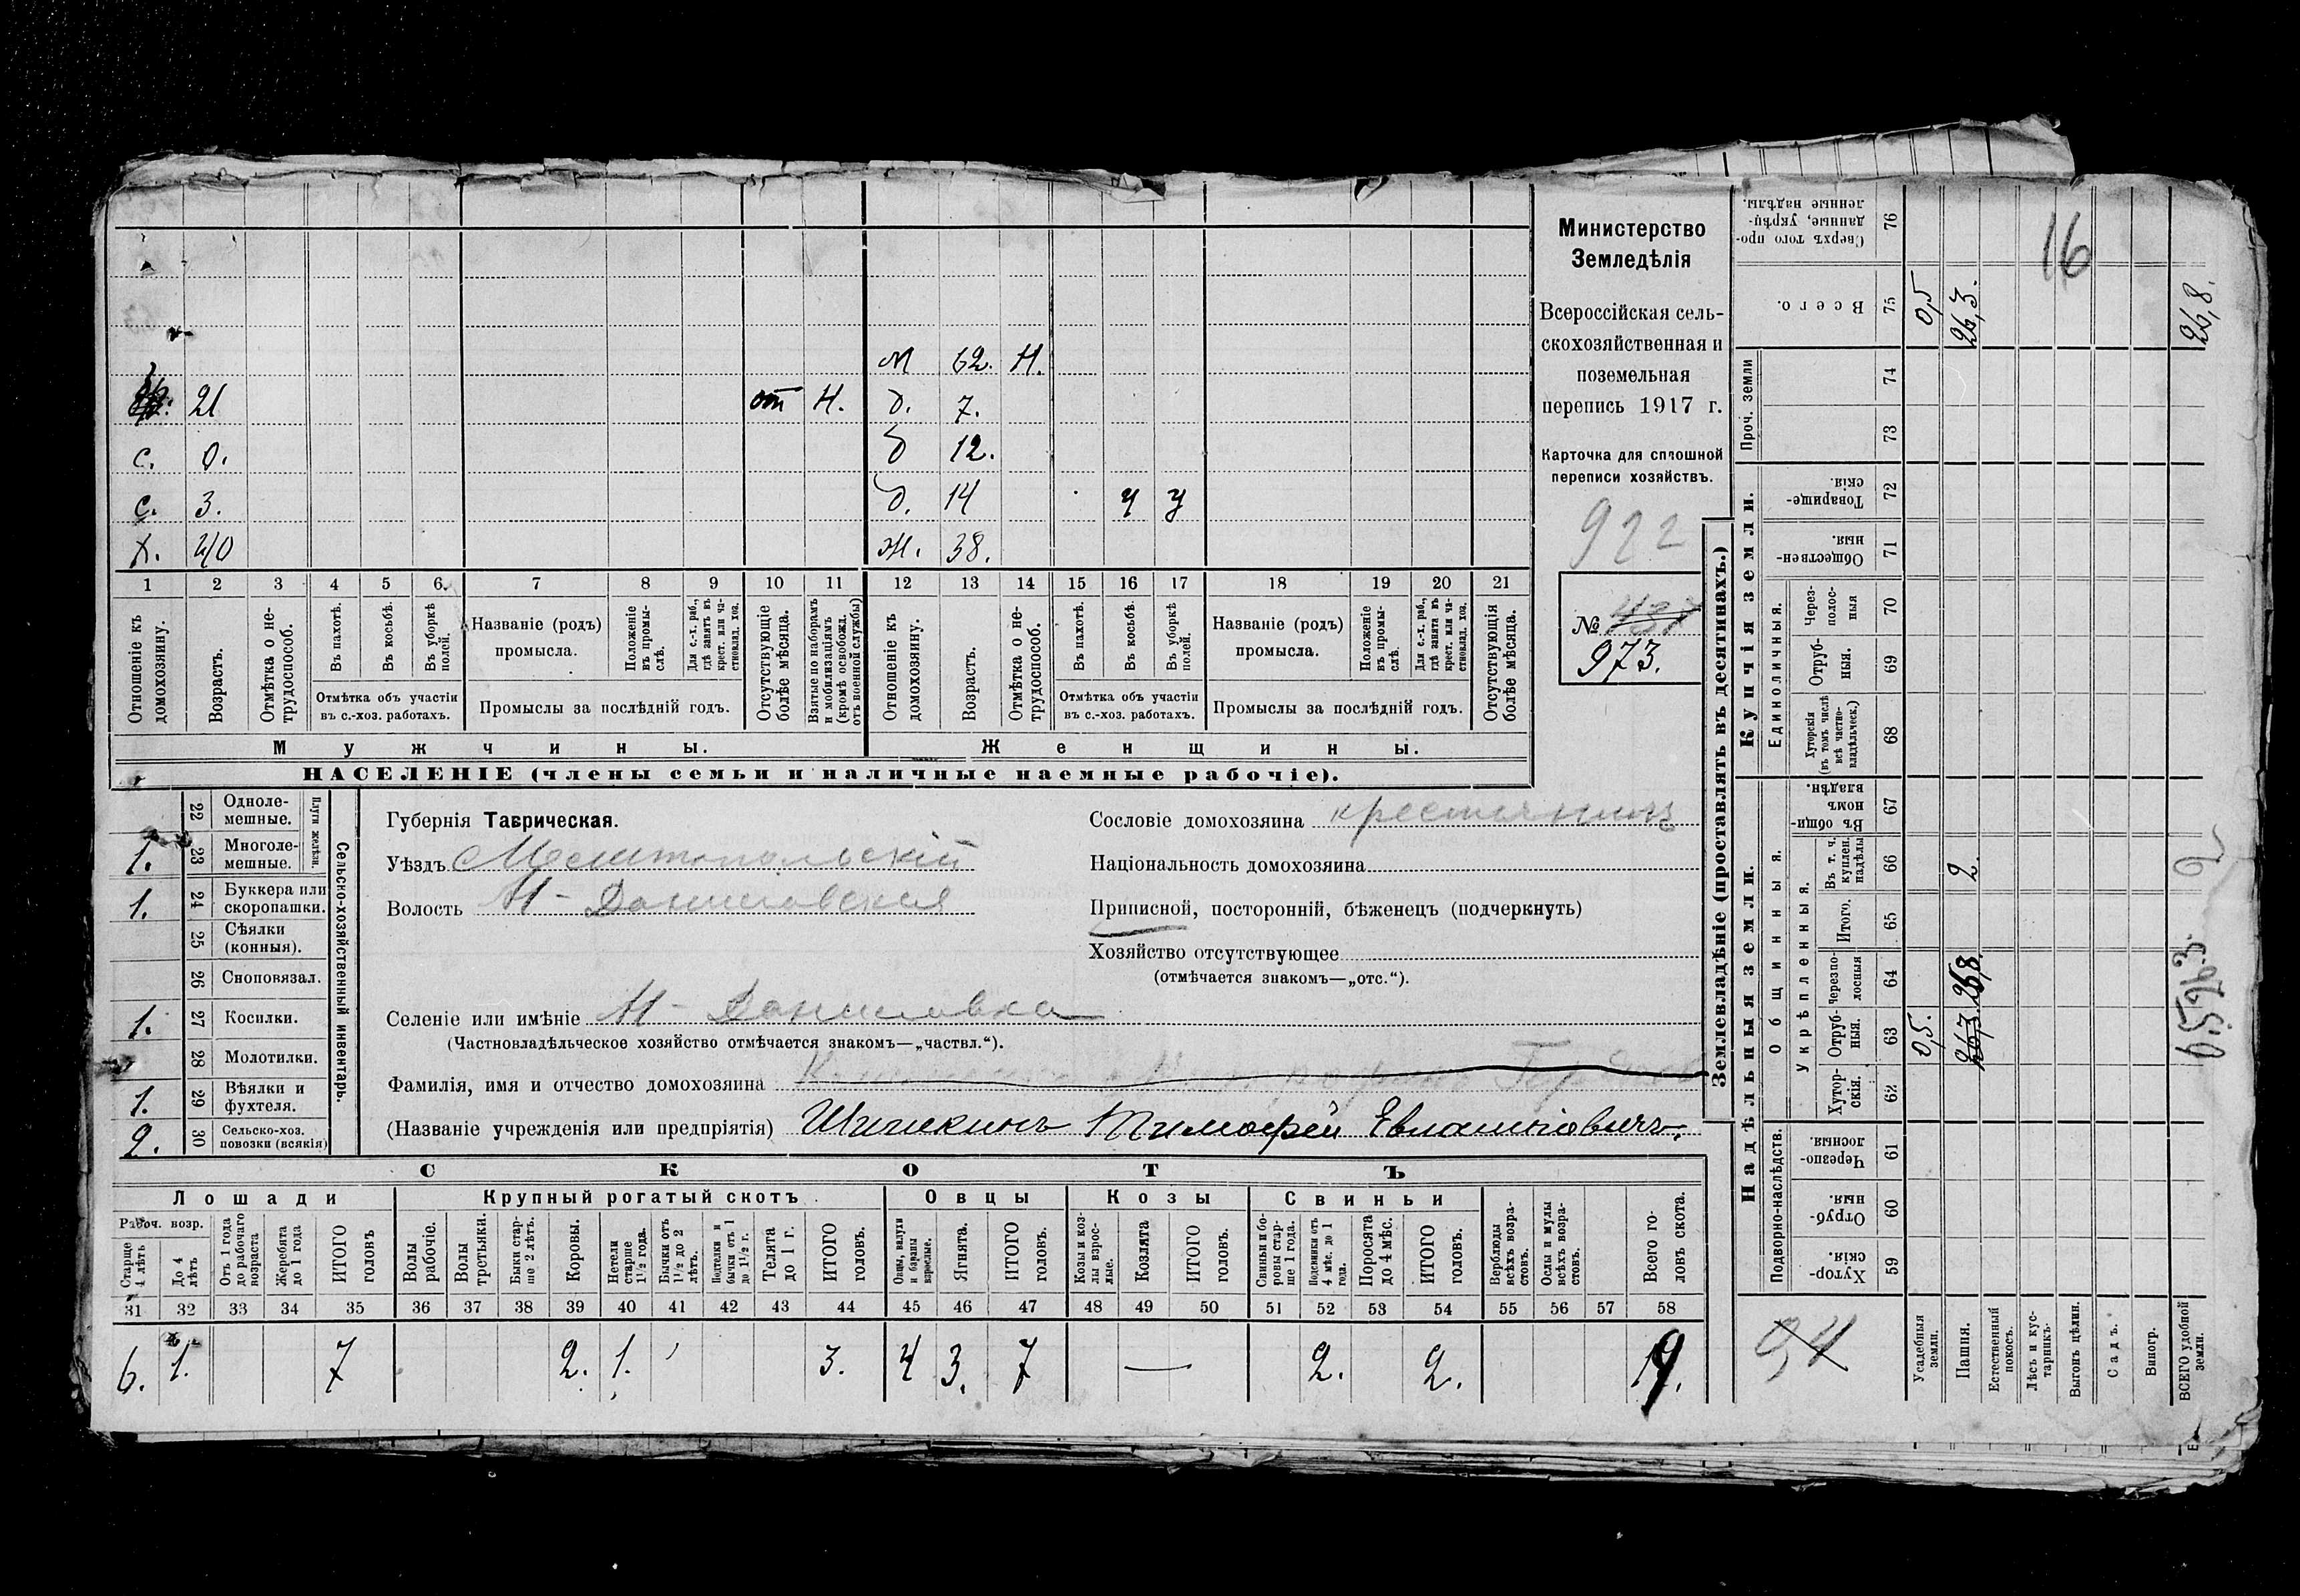 Министерство
Земледѣлія
Всероссійская сель-
скохозяйственная и
поземельная
перепись 1917 г.
Карточка для сплошной
переписи хозяйствъ.
922
№
973.
м 62. Н.
21 от Н. д. 7.
с. 0. д 12.
с. 3. д. 14 ч у
х. 40 ж. 38.
1 2 3 4 5 6. 7 8 9 10 11 12 13 14 15 16 17 18 19 20 21
Отношеніе къ домохозяину.
Возрастъ.
Отмѣтка о не-трудоспособ.
Въ пахотѣ.
Въ косьбѣ.
Въ уборкѣ полей.
Отмѣтка объ участіи
въ с.-хоз. работахъ.
Названіе (родъ)
промысла.
Положеніе въ промы-слѣ.
Для с.-х. раб., гдѣ занятъ въ крест. или ча-стновлад. хоз.
Промыслы за послѣдній годъ.
Отсутствующіе болѣе мѣсяца.
Взятые по наборамъ и мобилизаціямъ (кромѣ освобожд. отъ военной службы)
Отношеніе къ домохозяину.
Возрастъ.
Отмѣтка о не-трудоспособ.
Въ пахотѣ.
Въ косьбѣ.
Въ уборкѣ полей.
Отмѣтка объ участіи
въ с.-хоз. работахъ.
Названіе (родъ)
промысла.
Положеніе въ промы-слѣ.
Для с.-х. раб., гдѣ занята въ крест. или ча-стновлад. хоз.
Промыслы за послѣдній годъ.
Отсутствующія болѣе мѣсяца.
Мужчины.
Женщины.
НАСЕЛЕНІЕ (члены семьи и наличные наемные рабочіе).
Сельско-хозяйственный инвентарь.
Плуги желѣзн.
22 Одноле-мешные.
1. 23 Многоле-мешные.
1. 24 Буккера или скоропашки.
25 Сѣялки (конныя).
26 Сноповязал.
1. 27 Косилки.
28 Молотилки.
1. 29 Вѣялки и фухтеля.
2. 30 Сельско-хоз. повозки (всякія)
Губернія Таврическая.
Уѣздъ Мелитопольскій
Волость Н-Даниловская
Селеніе или имѣніе Н-Даниловка
(Частновладѣльческое хозяйство отмѣчается знакомъ—„частвл.“).
Фамилія, имя и отчество домохозяина
(Названіе учрежденія или предпріятія) Шишкинъ Тимофей Евлампіевичъ.
Сословіе домохозяина крестьянинъ
Національность домохозяина
Приписной, посторонній, бѣженецъ (подчеркнуть)
Хозяйство отсутствующее
(отмѣчается знакомъ—„отс.“).
СКОТЪ
Лошади
Крупный рогатый скотъ
Овцы
Козы
Свиньи
Рабоч. возр.
Старше 4 лѣтъ
До 4 лѣтъ
Отъ 1 года до рабочаго возраста
Жеребята до 1 года
ИТОГО головъ
Волы рабочіе.
Волы третьяки.
Быки стар-ше 2 лѣтъ.
Коровы.
Нетели старше 1½ года.
Бычки отъ 1½ до 2 лѣтъ.
Подтелки и бычки отъ 1 до 1½ г.
Телята до 1 г.
ИТОГО головъ.
Овцы, валухи и бараны взрослые.
Ягнята.
ИТОГО головъ.
Козы и коз-лы взрос-лые.
Козлята
ИТОГО головъ.
Свиньи и бо-ровы стар-ше 1 года.
Подсвинки отъ 4 мѣс. до 1 года.
Поросята до 4 мѣс.
ИТОГО головъ.
Верблюды всѣхъ возра-стовъ.
Ослы и мулы всѣхъ возра-стовъ.
Всего го-ловъ скота.
31 32 33 34 35 36 37 38 39 40 41 42 43 44 45 46 47 48 49 50 51 52 53 54 55 56 57 58
6. 1. 7 2. 1. 3. 4 3. 7 — 2. 2. 19.
Землевладѣніе (проставлять въ десятинахъ.)
Надѣльныя земли.
Купчія земли.
Проч. земли
Подворно-наслѣдств.
Общинныя.
Укрѣпленныя.
Единоличныя.
Сверхъ того про-данные, укрѣп-ленные надѣлы. 76
Всего. 75 0,5 26,3. 26,8.
74
73
Товарище-скія. 72
Обществен-ныя. 71
Через-полос-ныя 70
Отруб-ныя. 69
Хуторскія (въ томъ числѣ всѣ частно-владѣльческ.) 68
Въ общин-номъ владѣн. 67
Въ т. ч. куплен. надѣлы 66 2. 2
Итого. 65
Черезпо-лосныя 64 26,3.
Отруб-ныя. 63 0,5. 26,3
Хутор-скія. 62
Черезпо-лосныя 61
Отруб-ныя. 60
Хутор-скія. 59
16
94
Усадебныя земли.
Пашня.
Естественный покосъ.
Лѣсъ и кус-тарникъ.
Выгонъ цѣлин.
Садъ.
Виногр.
ВСЕГО удобной земли.